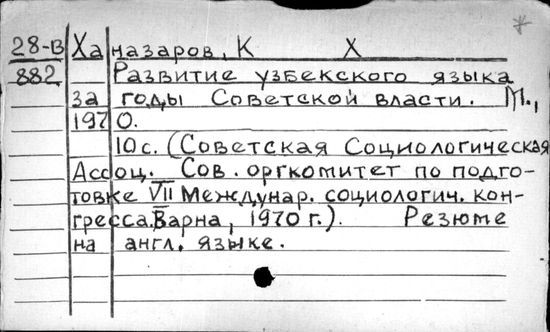 28-В Ханазаров, К Х
882 Развитие узбекского языка
за годы Советской власти. М.,
1970.
10с. (Советская Социологическая
Ассоц. Сов. оргкомитет по подго-
товке VII Междунар. социологич. кон-
гресса. Варна, 1970 г.). Резюме
на англ. языке.